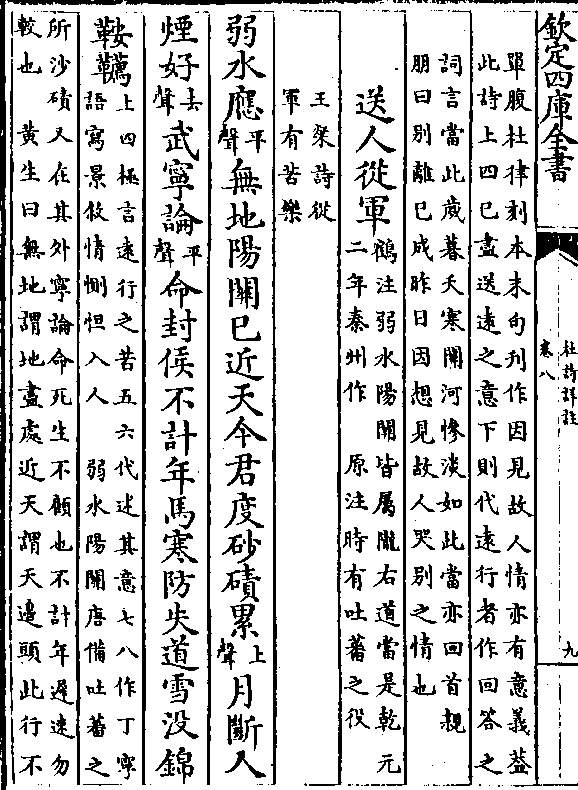 欽定四庫全書
杜詩詳註
卷八
九
單腹杜律刻本末句刊作因見故人情亦有意義葢
此詩上四已盡送遠之意下則代遠行者作回答之
詞言當此歲暮天寒關河慘淡如此當亦回首親
朋曰别離已成昨日因想見故人哭别之情也
送人從軍
鶴注弱水陽關皆屬隴右道當是乾元
二年秦州作 原注時有吐蕃之役
王粲詩從
軍有苦樂
弱水應平聲無地陽關已近天今君度砂磧累上聲月斷人
煙好去聲武寧論平聲命封侯不計年馬寒防失道雪没錦
鞍韉
上四極言遠行之苦五六代述其意七八作丁寧
語寫景敘情惻怛入人 弱水陽關唐備吐蕃之
所沙磧又在其外寧論命死生不顧也不計年遲速勿
較也 黄生曰無地謂地盡處近天謂天邊頭此行不